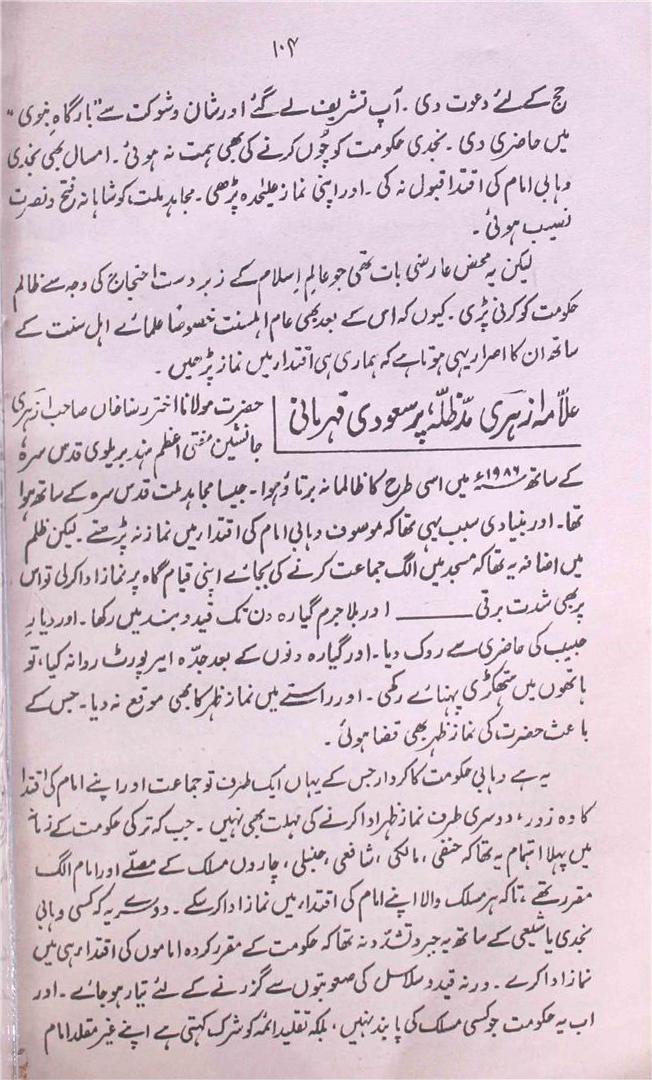 ۱۰۴
حج کے لئے دعوت دی ۔ آپ تشریف لے گئے اور شان و شوکت سے "بارگاہِ نبوی"
میں حاضری دی ۔ نجدی حکومت کو چُوں کرنے کی بھی ہمت نہ ہوئی ۔ امسال بھی نجدی
وہابی امام کی اقتدا قبول نہ کی ۔ اور اپنی نماز علیٰحدہ پڑھی ۔ مجاہد ملت کو شاہانہ فتح و نصرت
نصیب ہوئی ۔
لیکن یہ محض عارضی بات تھی جو عالمِ اسلام کے زبردست احتجاج کی وجہ سے ظالم
حکومت کو کرنی پڑی ۔ کیوں کہ اس کے بعد بھی عام اہلسنت خصوصًا علمائے اہل سنت کے
ساتھ ان کا اصرار یہی ہوتا ہے کہ ہماری ہی اقتدا میں نماز پڑھیں ۔
علامہ ازہری مدظلہٗ پر سعودی قہرمانی
حضرت مولانا اختر رضا خاں صاحب ازہری
جانشین مفتی اعظم ہند بریلوی قدس سرہٗ
کے ساتھ ۱۹۸۶ء میں اسی طرح کا ظالمانہ برتاؤ ہوا ۔ جیسا مجاہد ملت قدس سرہ کے ساتھ ہوا
تھا ۔ اور بنیادی سبب یہی تھا کہ موصوف وہابی امام کی اقتدار میں نماز نہ پڑھتے ۔ لیکن ظلم
میں اضافہ یہ تھا کہ مسجد میں الگ جماعت کرنے کی بجائے اپنی قیام گاہ پر نماز ادا کرلی تو اس
پر بھی شدت برتی ــــــــ اور بلا جرم گیارہ دن تک قید و بند میں رکھا ۔ اور دیارِ
حبیب کی حاضری سے روک دیا ۔ اور گیارہ دنوں کے بعد جدّہ ایرپورٹ روانہ کیا، تو
ہاتھوں میں ہتھکڑی پہنائے رکھی ۔ اور راستے میں نماز ظہر کا بھی موقع نہ دیا ۔ جس کے
باعث حضرت کی نماز ظہر بھی قضا ہوئی ۔
یہ ہے وہابی حکومت کا کردار جس کے یہاں ایک طرف تو جماعت اور اپنے امام کی اقتدا
کا وہ زور، دوسری طرف نماز ظہر ادا کرنے کی مہلت بھی نہیں ۔ جب کہ ترکی حکومت کے زمانہ
میں پہلا اہتمام یہ تھا کہ حنفی ، مالکی ، شافعی ، حنبلی ، چاروں مسلک کے مصلّے اور امام الگ
مقرر تھے ، تاکہ ہر مسلک والا اپنے امام کی اقتداء میں نماز ادا کرسکے ۔ دوسرے یہ کہ کسی وہابی
نجدی یا شیعی کے ساتھ یہ جبر و تشدّد نہ تھا کہ حکومت کے مقرر کردہ اماموں کی اقتداء ہی میں
نماز ادا کرے ۔ ورنہ قید و سلاسل کی صعوبتوں سے گزرنے کے لئے تیار ہو جائے ۔ اور
اب یہ حکومت جو کسی مسلک کی پابند نہیں ، بلکہ تقلید ائمہ کو شرک کہتی ہے اپنے غیر مقلد امام